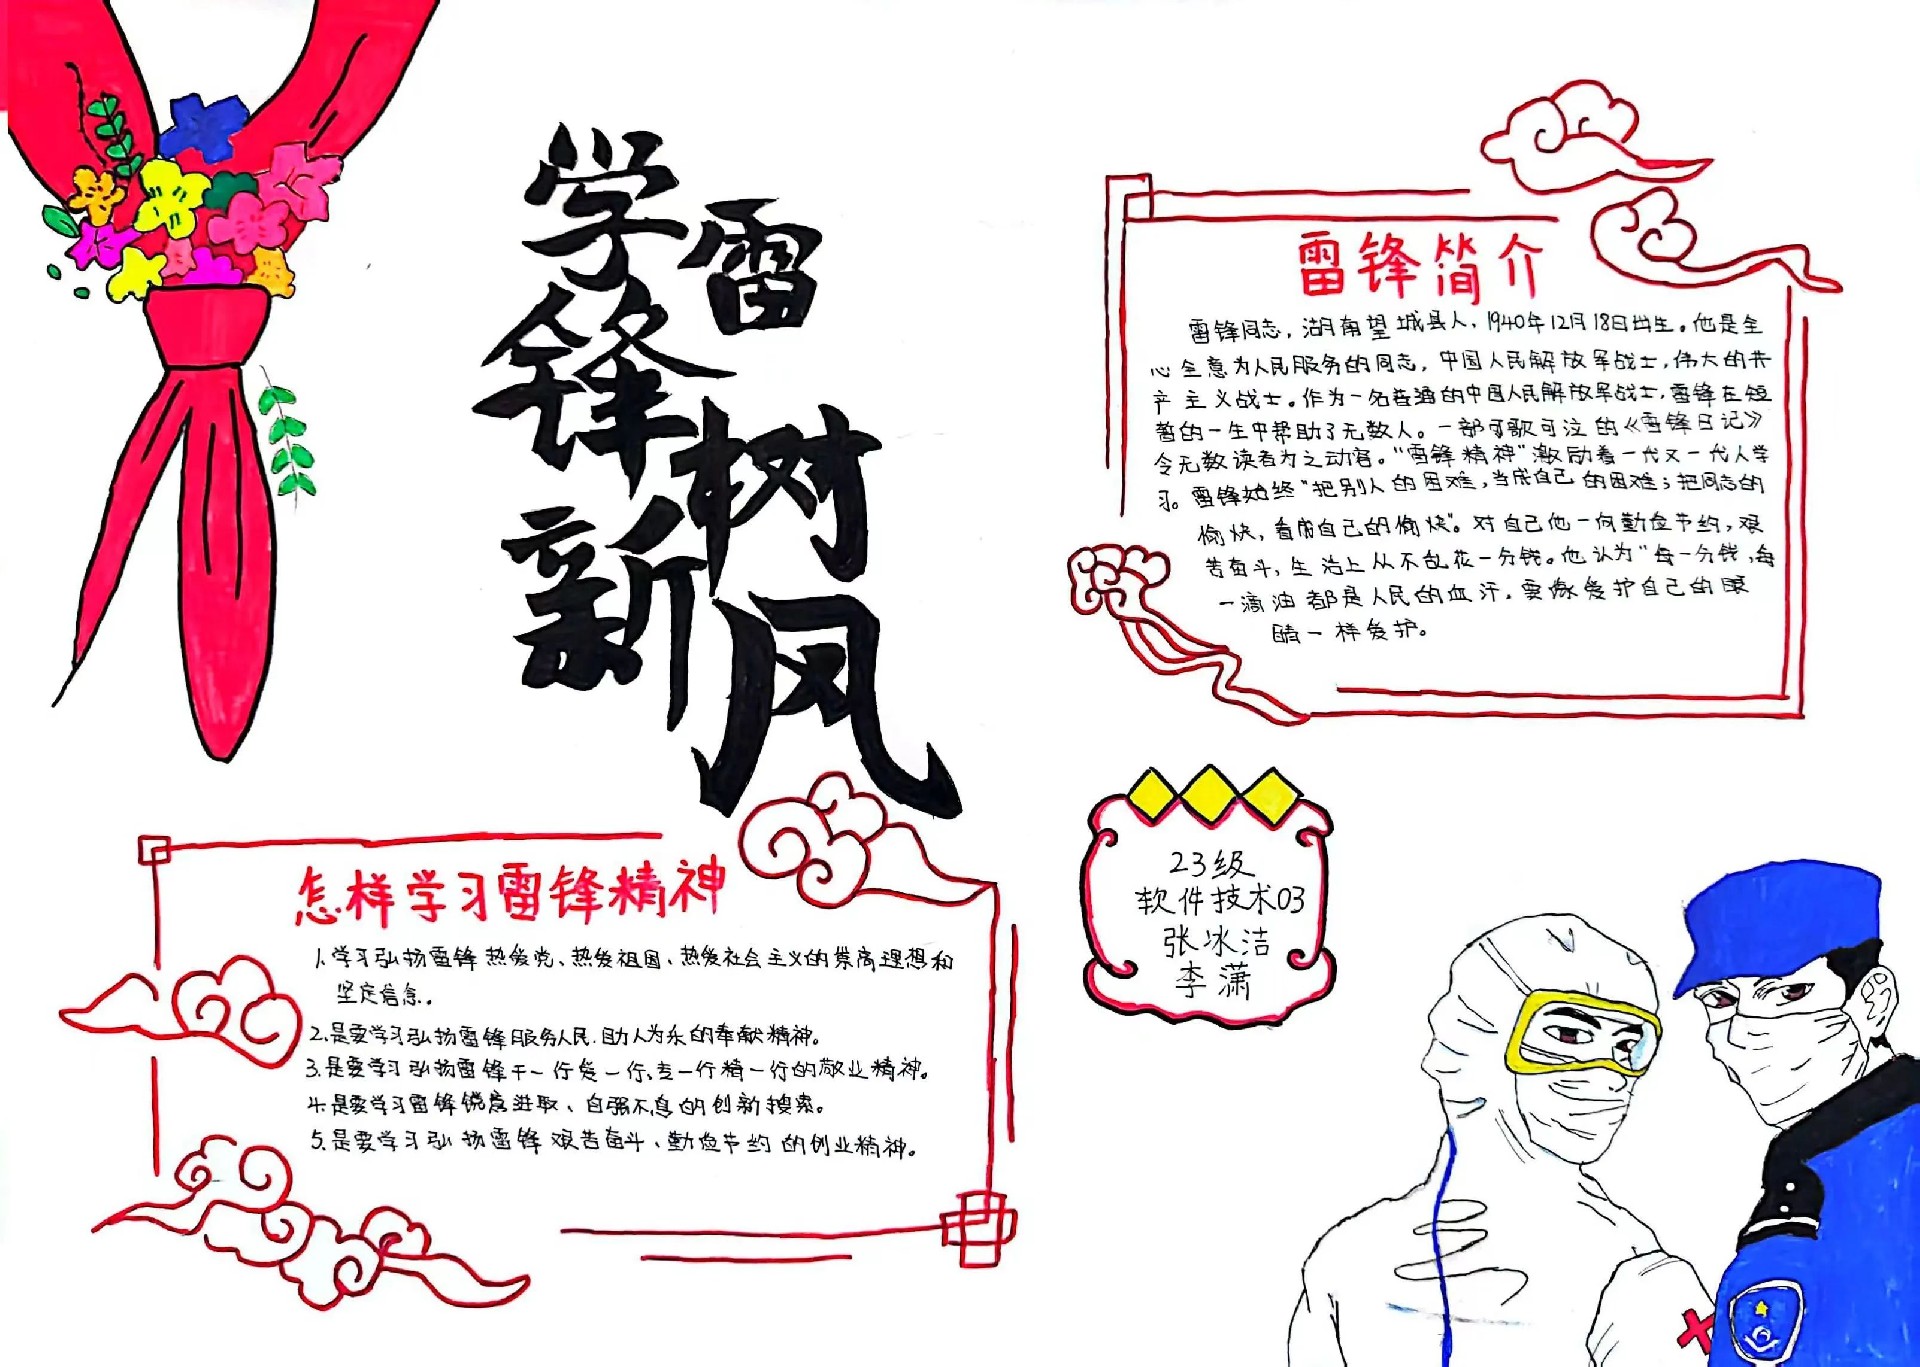 学雷锋树新风
雷锋简介
雷锋同志，湖南望城县人，1940年12月18日出生。他是全
心全意为人民服务的同志，中国人民解放军战士，伟大的共
产主义战士。作为一名普通的中国人民解放军战士，雷锋在短
暂的一生中帮助了无数人。一部可歌可泣的《雷锋日记》
令无数读者为之动容。“雷锋精神”激励着一代又一代人学
习。雷锋始终“把别人的困难，当成自己的困难；把同志的
愉快，看成自己的愉快”。对自己他一向勤俭节约，艰
苦奋斗，生活上从不乱花一分钱。他认为“每一分钱，每
一滴油都是人民的血汗，要像爱护自己的眼
睛一样爱护。
怎样学习雷锋精神
1.学习弘扬雷锋热爱党、热爱祖国、热爱社会主义的崇高理想和
坚定信念。
2.是要学习弘扬雷锋服务人民.助人为乐的奉献精神。
3.是要学习弘扬雷锋干一行爱一行、专一行精一行的敬业精神。
4.是要学习雷锋锐意进取、自强不息的创新搜索。
5.是要学习弘扬雷锋艰苦奋斗、勤俭节约的创业精神。
23级
软件技术03
张冰洁
李潇